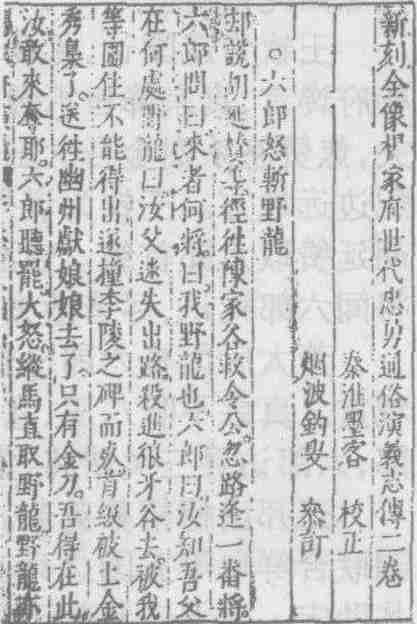 新刻全像楊家府世代忠勇通俗演義志傳二卷
秦淮墨客 校正
烟波釣叟 參訂
○六郎怒斬野龍
却說胡延贊等徑往陳家谷救令公忽路逢一番將
六郎問曰來者何將曰我野龍也六郎曰汝知吾父
在何處野龍曰汝父迷失出路殺進狼牙谷去被我
等圍住不能得出遂撞李陵之碑而死首級被土金
秀梟了送徃幽州獻娘娘去了只有金刀吾得在此
汝敢來奪耶六郎聽罷大怒縱馬直取野龍野龍亦